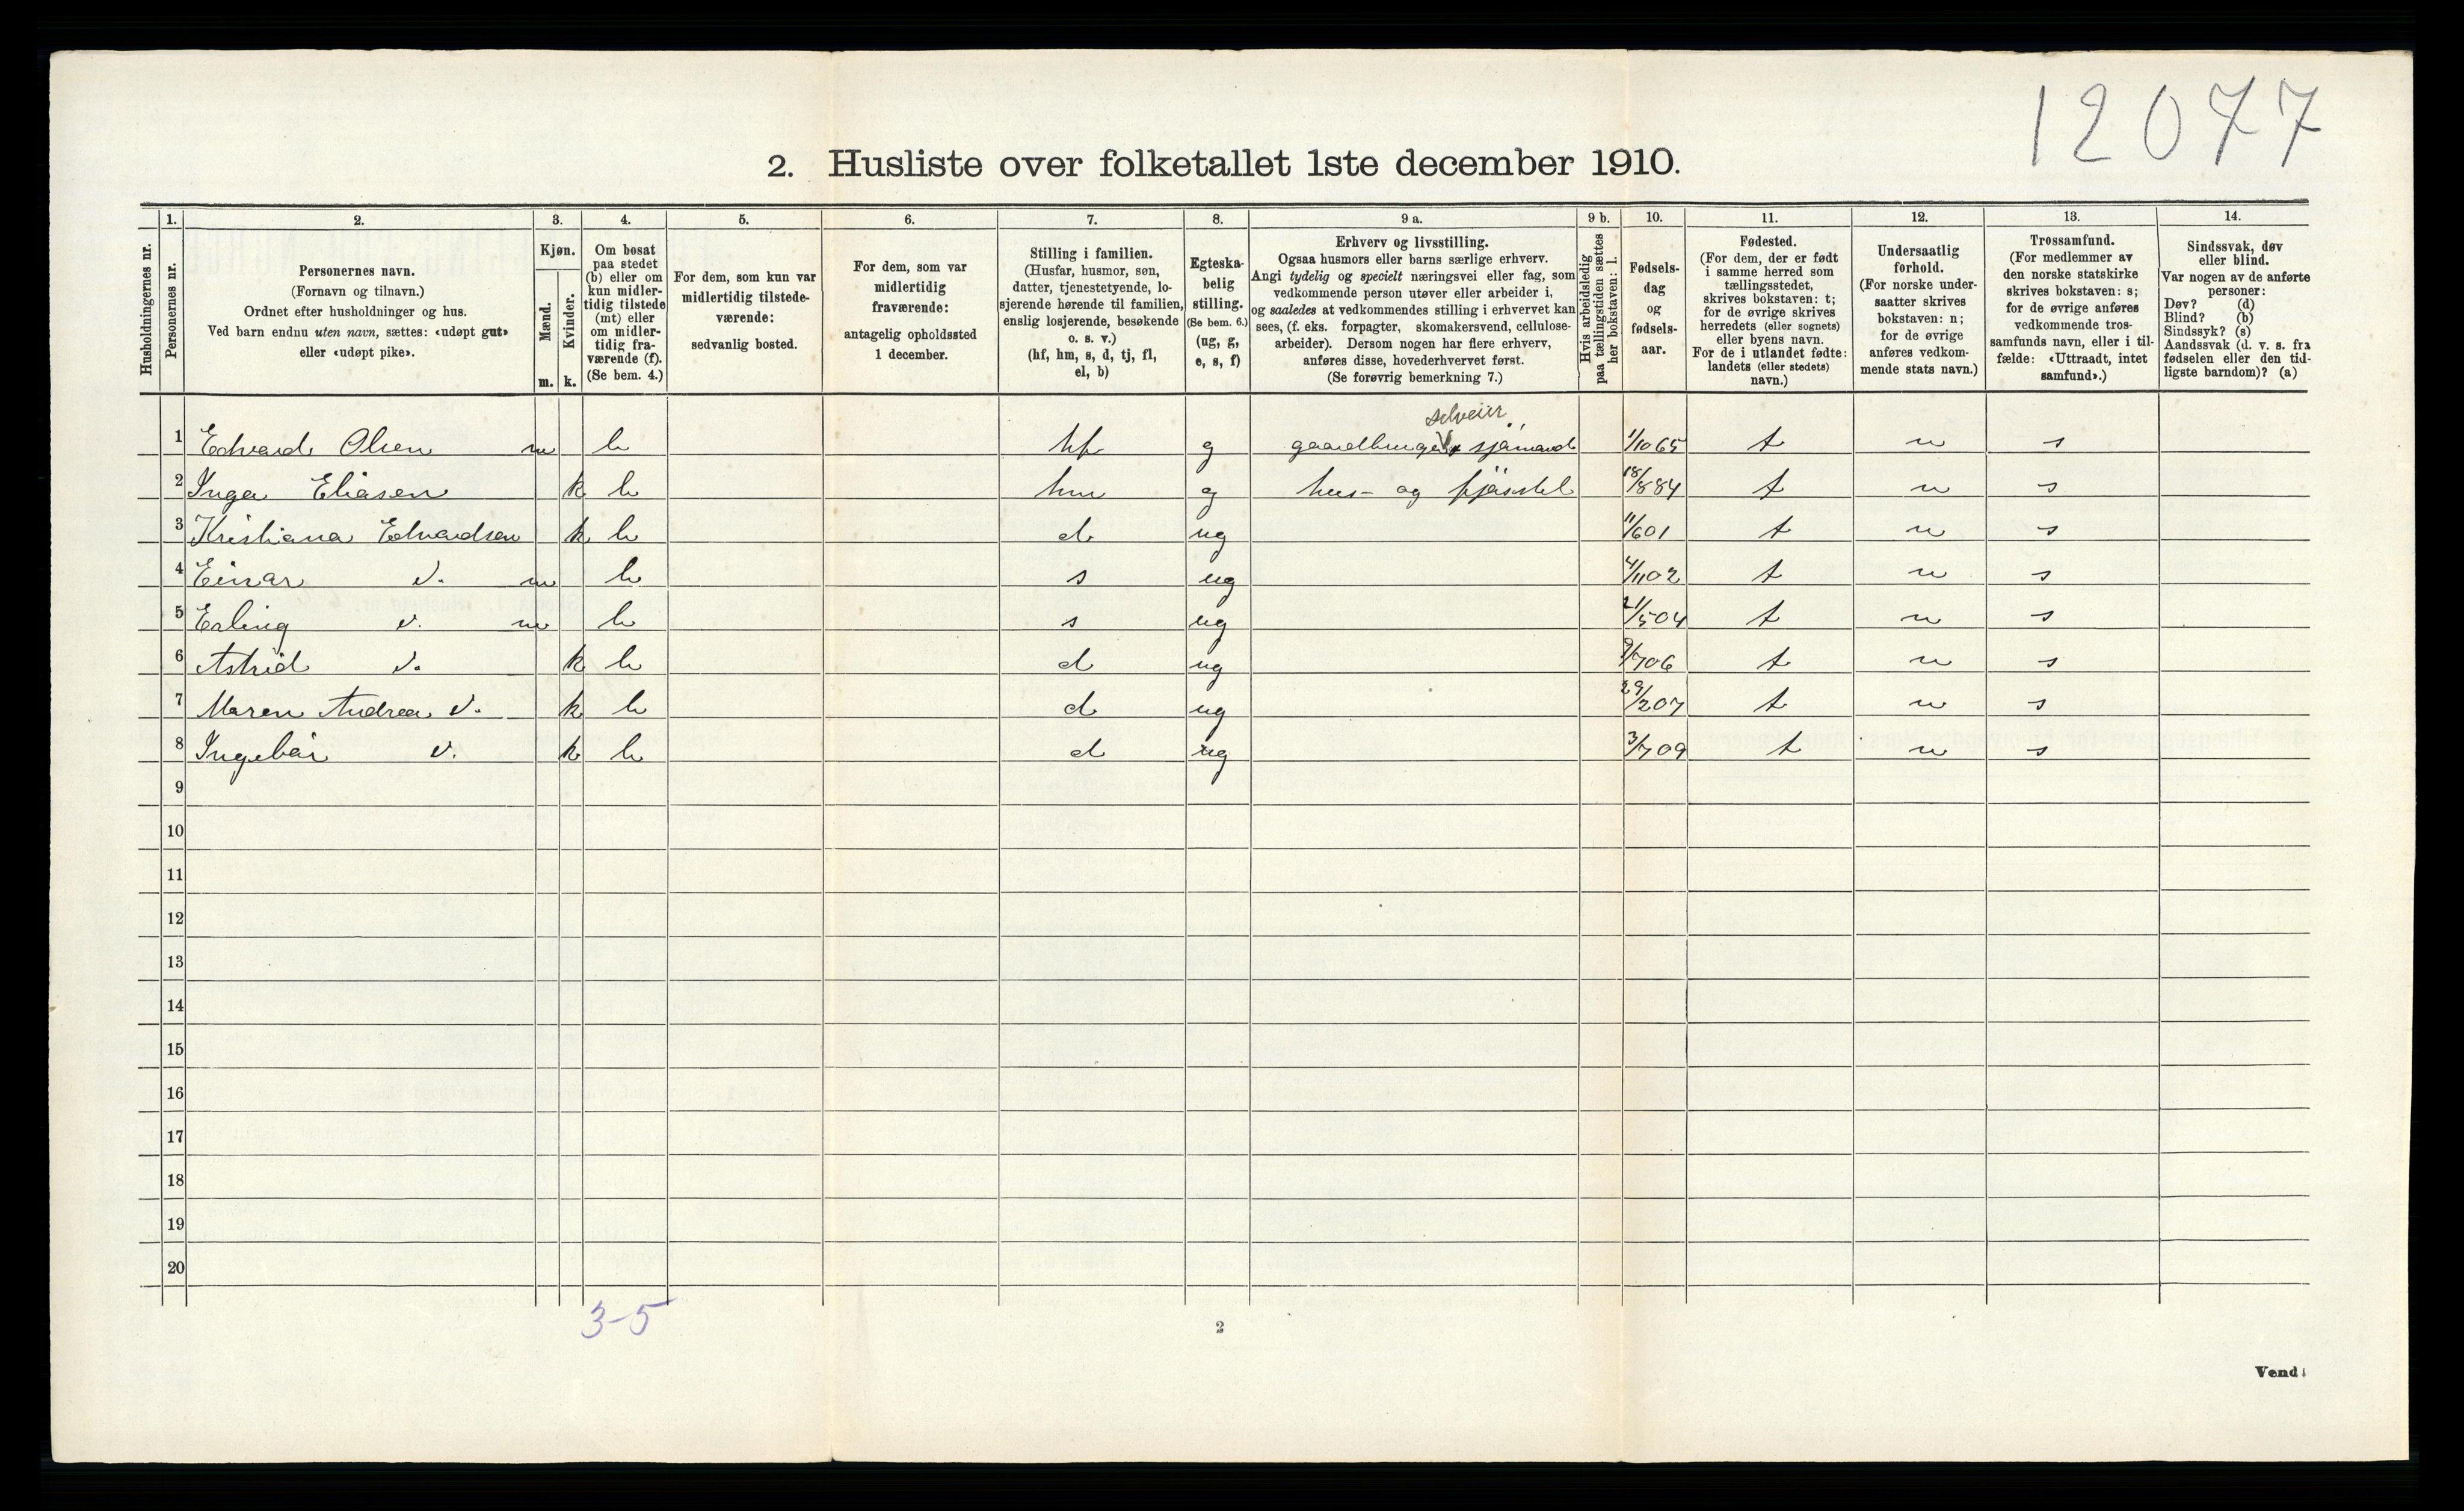 12077
2. Husliste over folketallet 1ste december 1910.
Husholdningernes nr.
1.
Personernes nr.
2.
Personernes navn.
(Fornavn og tilnavn.)
Ordnet efter husholdninger og hus.
Ved barn endnu uten navn, sættes: «udøpt gut»
eller «udøpt pike».
3.
Kjøn.
Mænd.
m.
Kvinder.
k.
4.
Om bosat
paa stedet
(b) eller om
kun midler-
tidig tilstede
(mt) eller
om midler-
tidig fra-
værende (f).
(Se bem. 4.)
5.
For dem, som kun var
midlertidig tilstede-
værende:
sedvanlig bosted.
6.
For dem, som var
midlertidig
fraværende:
antagelig opholdssted
1 december.
7.
Stilling i familien.
(Husfar, husmor, søn,
datter, tjenestetyende, lo-
sjerende hørende til familien,
enslig losjerende, besøkende
o. s. v.)
(hf, hm, s, d, tj, fl,
el, b)
8.
Egteska-
belig
stilling.
(Se bem. 6.)
(ug, g,
e, s, f)
9 a.
Erhverv og livsstilling.
Ogsaa husmors eller barns særlige erhverv.
Angi tydelig og specielt næringsvei eller fag, som
vedkommende person utøver eller arbeider i,
og saaledes at vedkommendes stilling i erhvervet kan
sees, (f. eks. forpagter, skomakersvend, cellulose-
arbeider). Dersom nogen har flere erhverv,
anføres disse, hovederhvervet først.
(Se forøvrig bemerkning 7.)
9 b.
Hvis arbeidsledig
paa tællingstiden sættes
her bokstaven: l.
10.
Fødsels-
dag
og
fødsels-
aar.
11.
Fødested.
(For dem, der er født
i samme herred som
tællingsstedet,
skrives bokstaven: t;
for de øvrige skrives
herredets (eller sognets)
eller byens navn.
For de i utlandet fødte:
landets (eller stedets)
navn.)
12.
Undersaatlig
forhold.
(For norske under-
saatter skrives
bokstaven: n;
for de øvrige
anføres vedkom-
mende stats navn.)
13.
Trossamfund.
(For medlemmer av
den norske statskirke
skrives bokstaven: s;
for de øvrige anføres
vedkommende tros-
samfunds navn, eller i til-
fælde: «Uttraadt, intet
samfund».)
14.
Sindssvak, døv
eller blind.
Var nogen av de anførte
personer:
Døv? (d)
Blind? (b)
Sindssyk? (s)
Aandssvak (d. v. s. fra
fødselen eller den tid-
ligste barndom)? (a)
selveier
1 Edvard Olsen m b hf g gaardbruger sjömand 1/10 65 t n s
2 Inga Eliasen k b hm g hus- og fjösstel 18/8 84 t n s
3 Kristiana Edvardsen k b d ug 11/6 01 t n s
4 Einar d. m b s ug 4/11 02 t n s
5 Erling d. m b s ug 21/5 04 t n s
6 Astrid d. k b d ug 9/7 06 t n s
7 Maren Andrea d. k b d ug 29/2 07 t n s
8 Ingebår d. k b d ug 3/7 09 t n s
9
10
11
12
13
14
15
16
17
18
19
20
3-5
2
Vend!